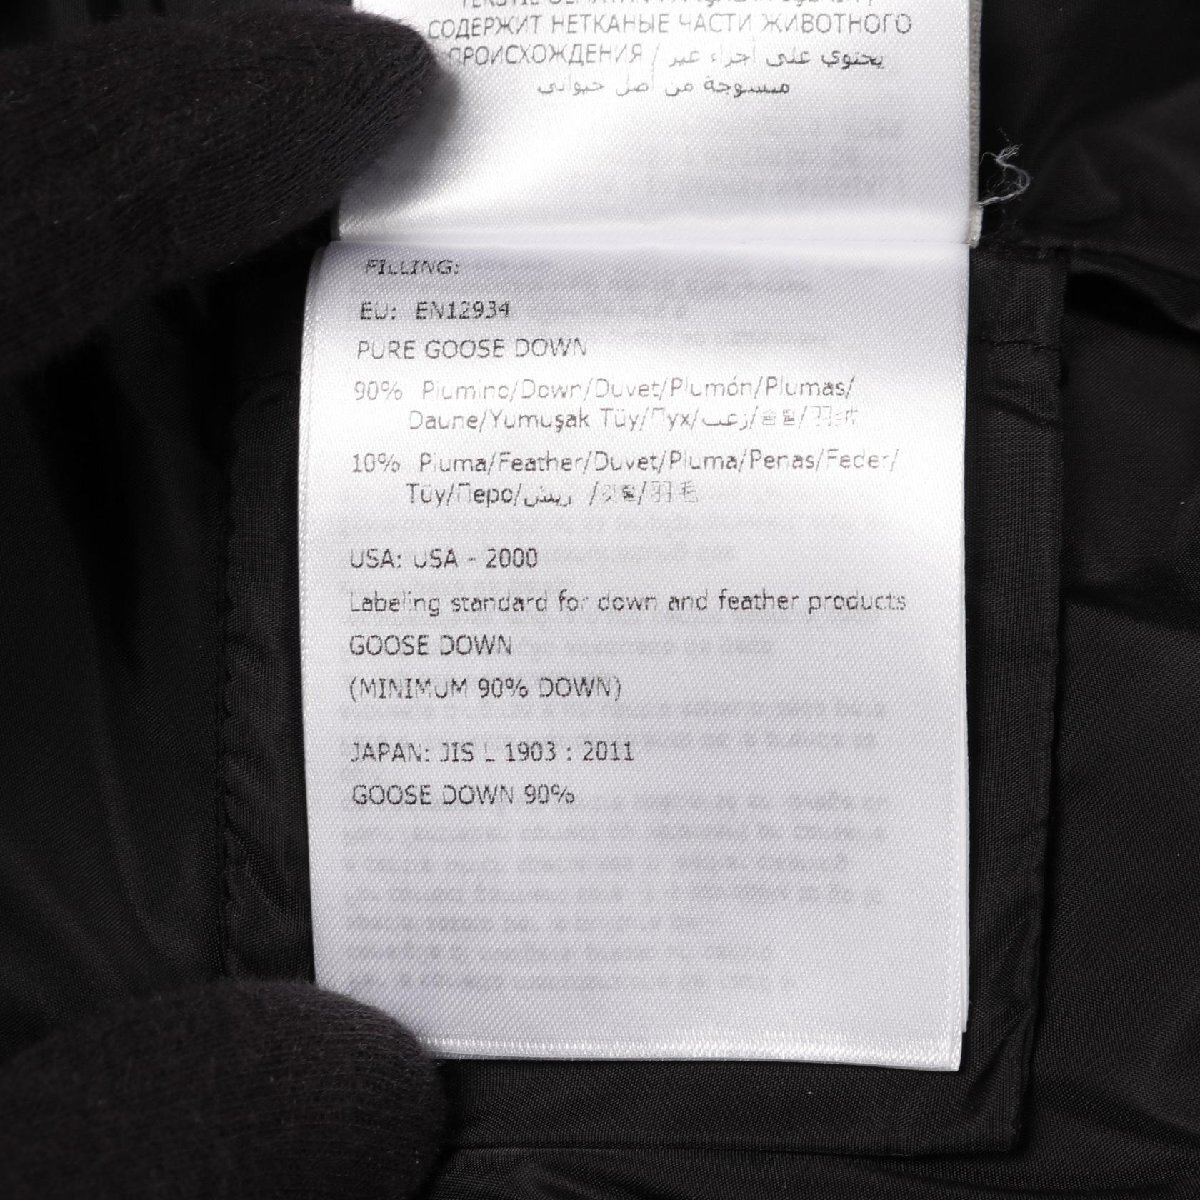 СОДЕРЖИТ НЕТКАНЫЕ ЧАСТИ ЖИВОТНОГО
ПРОИСХОЖДЕНИЯ / يحتوي على أجزاء غير
منسوجة من أصل حيواني
FILLING:
EU: EN12934
PURE GOOSE DOWN
90% Piumino/Down/Duvet/Plumón/Plumas/
Daune/Yumuşak Tüy/Пух/زغب/솜털/羽绒
10% Piuma/Feather/Duvet/Pluma/Penas/Feder/
Tüy/Перо/ريش /깃털/羽毛
USA: USA - 2000
Labeling standard for down and feather products
GOOSE DOWN
(MINIMUM 90% DOWN)
JAPAN: JIS L 1903 : 2011
GOOSE DOWN 90%